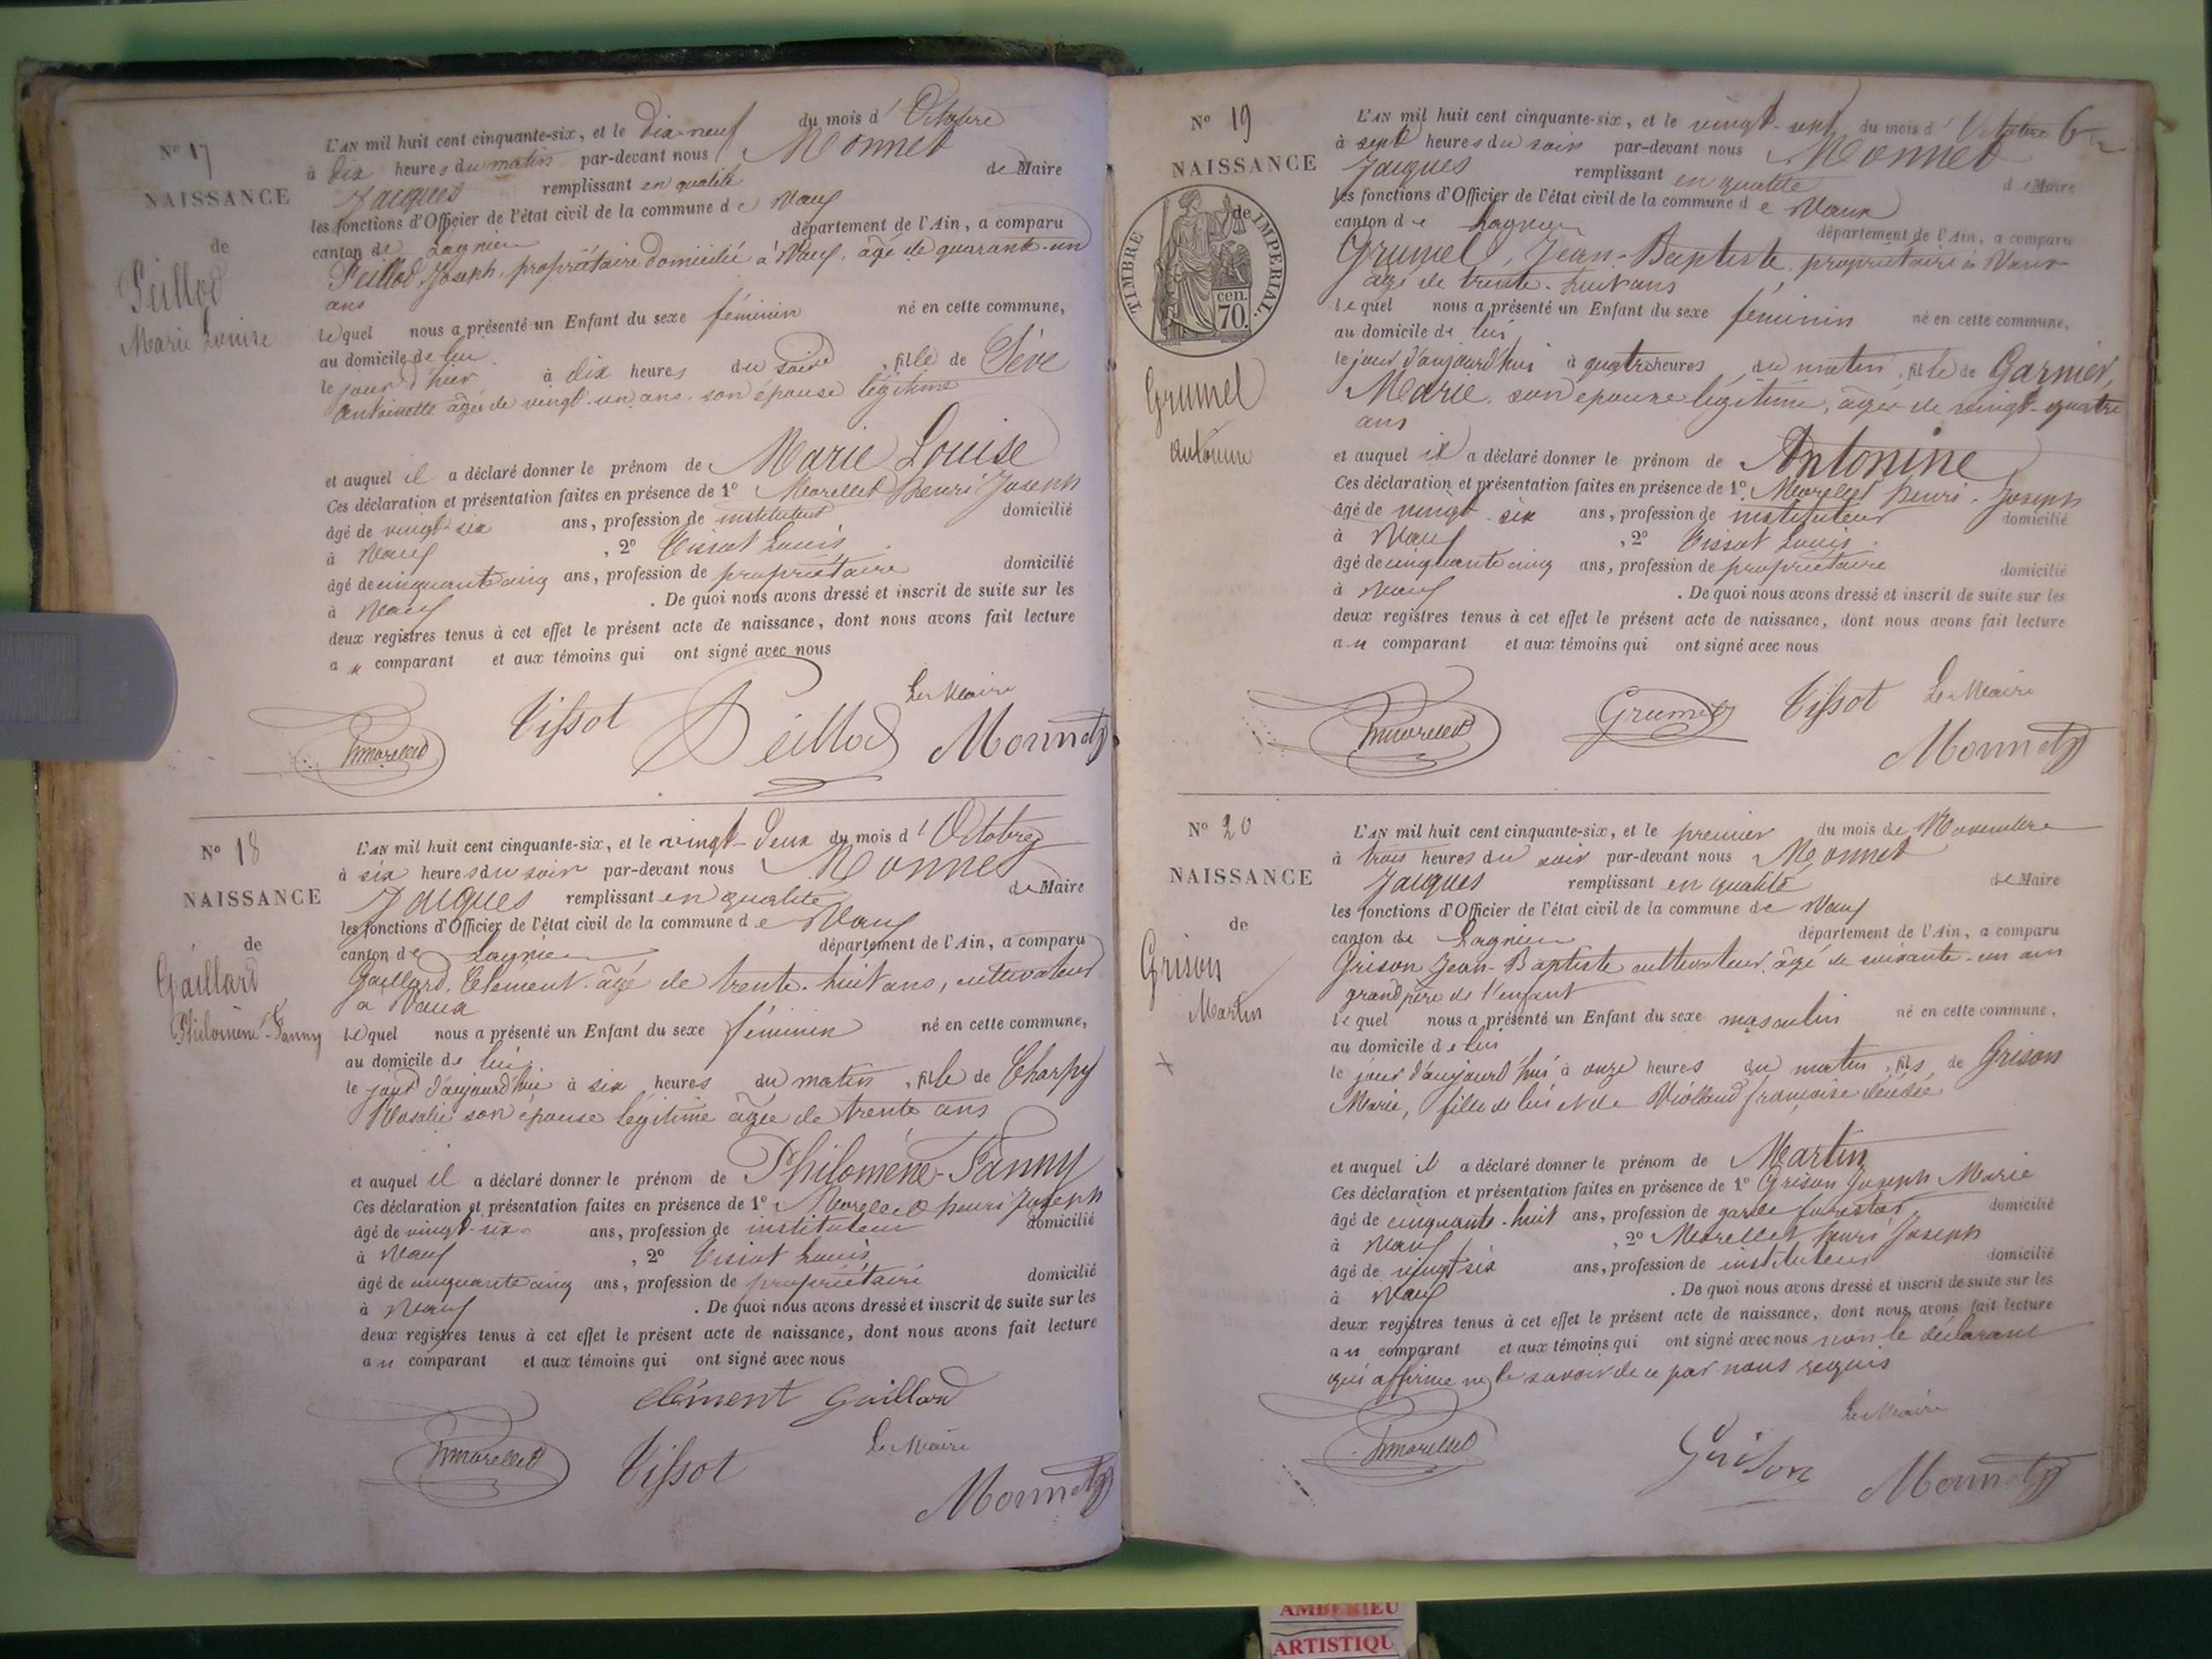 N° 17
NAISSANCE
de
Peillod
Marie Louise
L'AN mil huit cent cinquante-six, et le Dix-neuf du mois d' Octobre
à dix heures du matin par-devant nous Monnet
Jacques remplissant en qualité de Maire
les fonctions d'Officier de l'état civil de la commune de Vaux
canton de Lagnieu département de l'Ain, a comparu
Peillod, Joseph, propriétaire domicilié à Vaux, âgé de quarante-un
ans
lequel nous a présenté un Enfant du sexe féminin né en cette commune,
au domicile de lui
le jour d'hier à dix heures du soir, fille de Sève
Antoinette âgée de vingt-un ans, son épouse légitime
et auquel il a déclaré donner le prénom de Marie Louise
Ces déclaration et présentation faites en présence de 1° Morellet henri Joseph
âgé de vingt-six ans, profession de instituteur domicilié
à Vaux, 2° Tissot Louis
âgé de cinquante cinq ans, profession de propriétaire domicilié
à Vaux. De quoi nous avons dressé et inscrit de suite sur les
deux registres tenus à cet effet le présent acte de naissance, dont nous avons fait lecture
au comparant et aux témoins qui ont signé avec nous
Le Maire
hmorellet Tissot Peillod Monnet
N° 18
NAISSANCE
de
Gaillard
Philomène-Fanny
L'AN mil huit cent cinquante-six, et le vingt-deux du mois d' Octobre
à six heures du soir par-devant nous Monnet
Jacques remplissant en qualité de Maire
les fonctions d'Officier de l'état civil de la commune de Vaux
canton de Lagnieu département de l'Ain, a comparu
Gaillard, Clément âgé de trente-huit ans, cultivateur
à Vaux
lequel nous a présenté un Enfant du sexe féminin né en cette commune,
au domicile de lui
le jour d'aujourd'hui à six heures du matin, fille de Charpy
Rosalie son épouse légitime âgée de trente ans
et auquel il a déclaré donner le prénom de Philomène-Fanny
Ces déclaration et présentation faites en présence de 1° Morellet henri Joseph
âgé de vingt-six ans, profession de instituteur domicilié
à Vaux, 2° Tissot Louis
âgé de cinquante cinq ans, profession de propriétaire domicilié
à Vaux. De quoi nous avons dressé et inscrit de suite sur les
deux registres tenus à cet effet le présent acte de naissance, dont nous avons fait lecture
au comparant et aux témoins qui ont signé avec nous
Clément Gaillard
Le Maire
hmorellet Tissot Monnet
6
N° 19
NAISSANCE
de
TIMBRE IMPERIAL.
cen.
70.
Grumel
Antonine
L'AN mil huit cent cinquante-six, et le vingt-sept du mois d' Octobre
à sept heures du soir par-devant nous Monnet
Jacques remplissant en qualité de Maire
les fonctions d'Officier de l'état civil de la commune de Vaux
canton de Lagnieu département de l'Ain, a comparu
Grumel, Jean-Baptiste, propriétaire à Vaux
âgé de trente-huit ans
lequel nous a présenté un Enfant du sexe féminin né en cette commune,
au domicile de lui
le jour d'aujourd'hui à quatre heures du matin, fille de Garnier,
Marie, son épouse légitime, âgée de vingt-quatre
ans
et auquel il a déclaré donner le prénom de Antonine
Ces déclaration et présentation faites en présence de 1° Morellet henri-Joseph
âgé de vingt-six ans, profession de instituteur domicilié
à Vaux, 2° Tissot Louis
âgé de cinquante cinq ans, profession de propriétaire domicilié
à Vaux. De quoi nous avons dressé et inscrit de suite sur les
deux registres tenus à cet effet le présent acte de naissance, dont nous avons fait lecture
au comparant et aux témoins qui ont signé avec nous
hmorellet Grumel Tissot Le Maire
Monnet
N° 20
NAISSANCE
de
Grison
Martin
L'AN mil huit cent cinquante-six, et le premier du mois de Novembre
à trois heures du soir par-devant nous Monnet
Jacques remplissant en qualité de Maire
les fonctions d'Officier de l'état civil de la commune de Vaux
canton de Lagnieu département de l'Ain, a comparu
Grison Jean-Baptiste cultivateur, âgé de soixante-un ans
grand père de l'enfant
lequel nous a présenté un Enfant du sexe masculin né en cette commune,
au domicile de lui
le jour d'aujourd'hui à onze heures du matin, fils de Grison
Marie, fille de lui et de françoise décédée
et auquel il a déclaré donner le prénom de Martin
Ces déclaration et présentation faites en présence de 1° Grison Joseph Marie
âgé de cinquante-huit ans, profession de garde forestier domicilié
à Vaux, 2° Morellet henri Joseph
âgé de vingt six ans, profession de instituteur domicilié
à Vaux. De quoi nous avons dressé et inscrit de suite sur les
deux registres tenus à cet effet le présent acte de naissance, dont nous avons fait lecture
au comparant et aux témoins qui ont signé avec nous non le déclarant
qui affirme ne le savoir de ce par nous requis
Le Maire
hmorellet Grison Monnet
AMBERIEU
ARTISTIQU